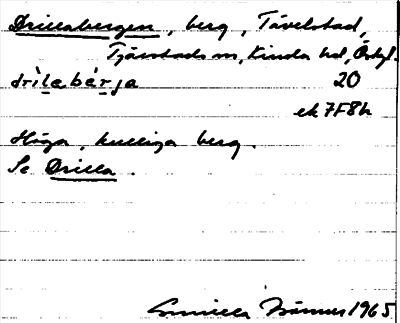 Drillabergen, berg, Tävelstad,
Tjärstads sn, Kinda hd, Östgl.
drìlabǽrja 20
ek 7F8h
Höga, kulliga berg.
Se Drilla.
Gunilla 1965